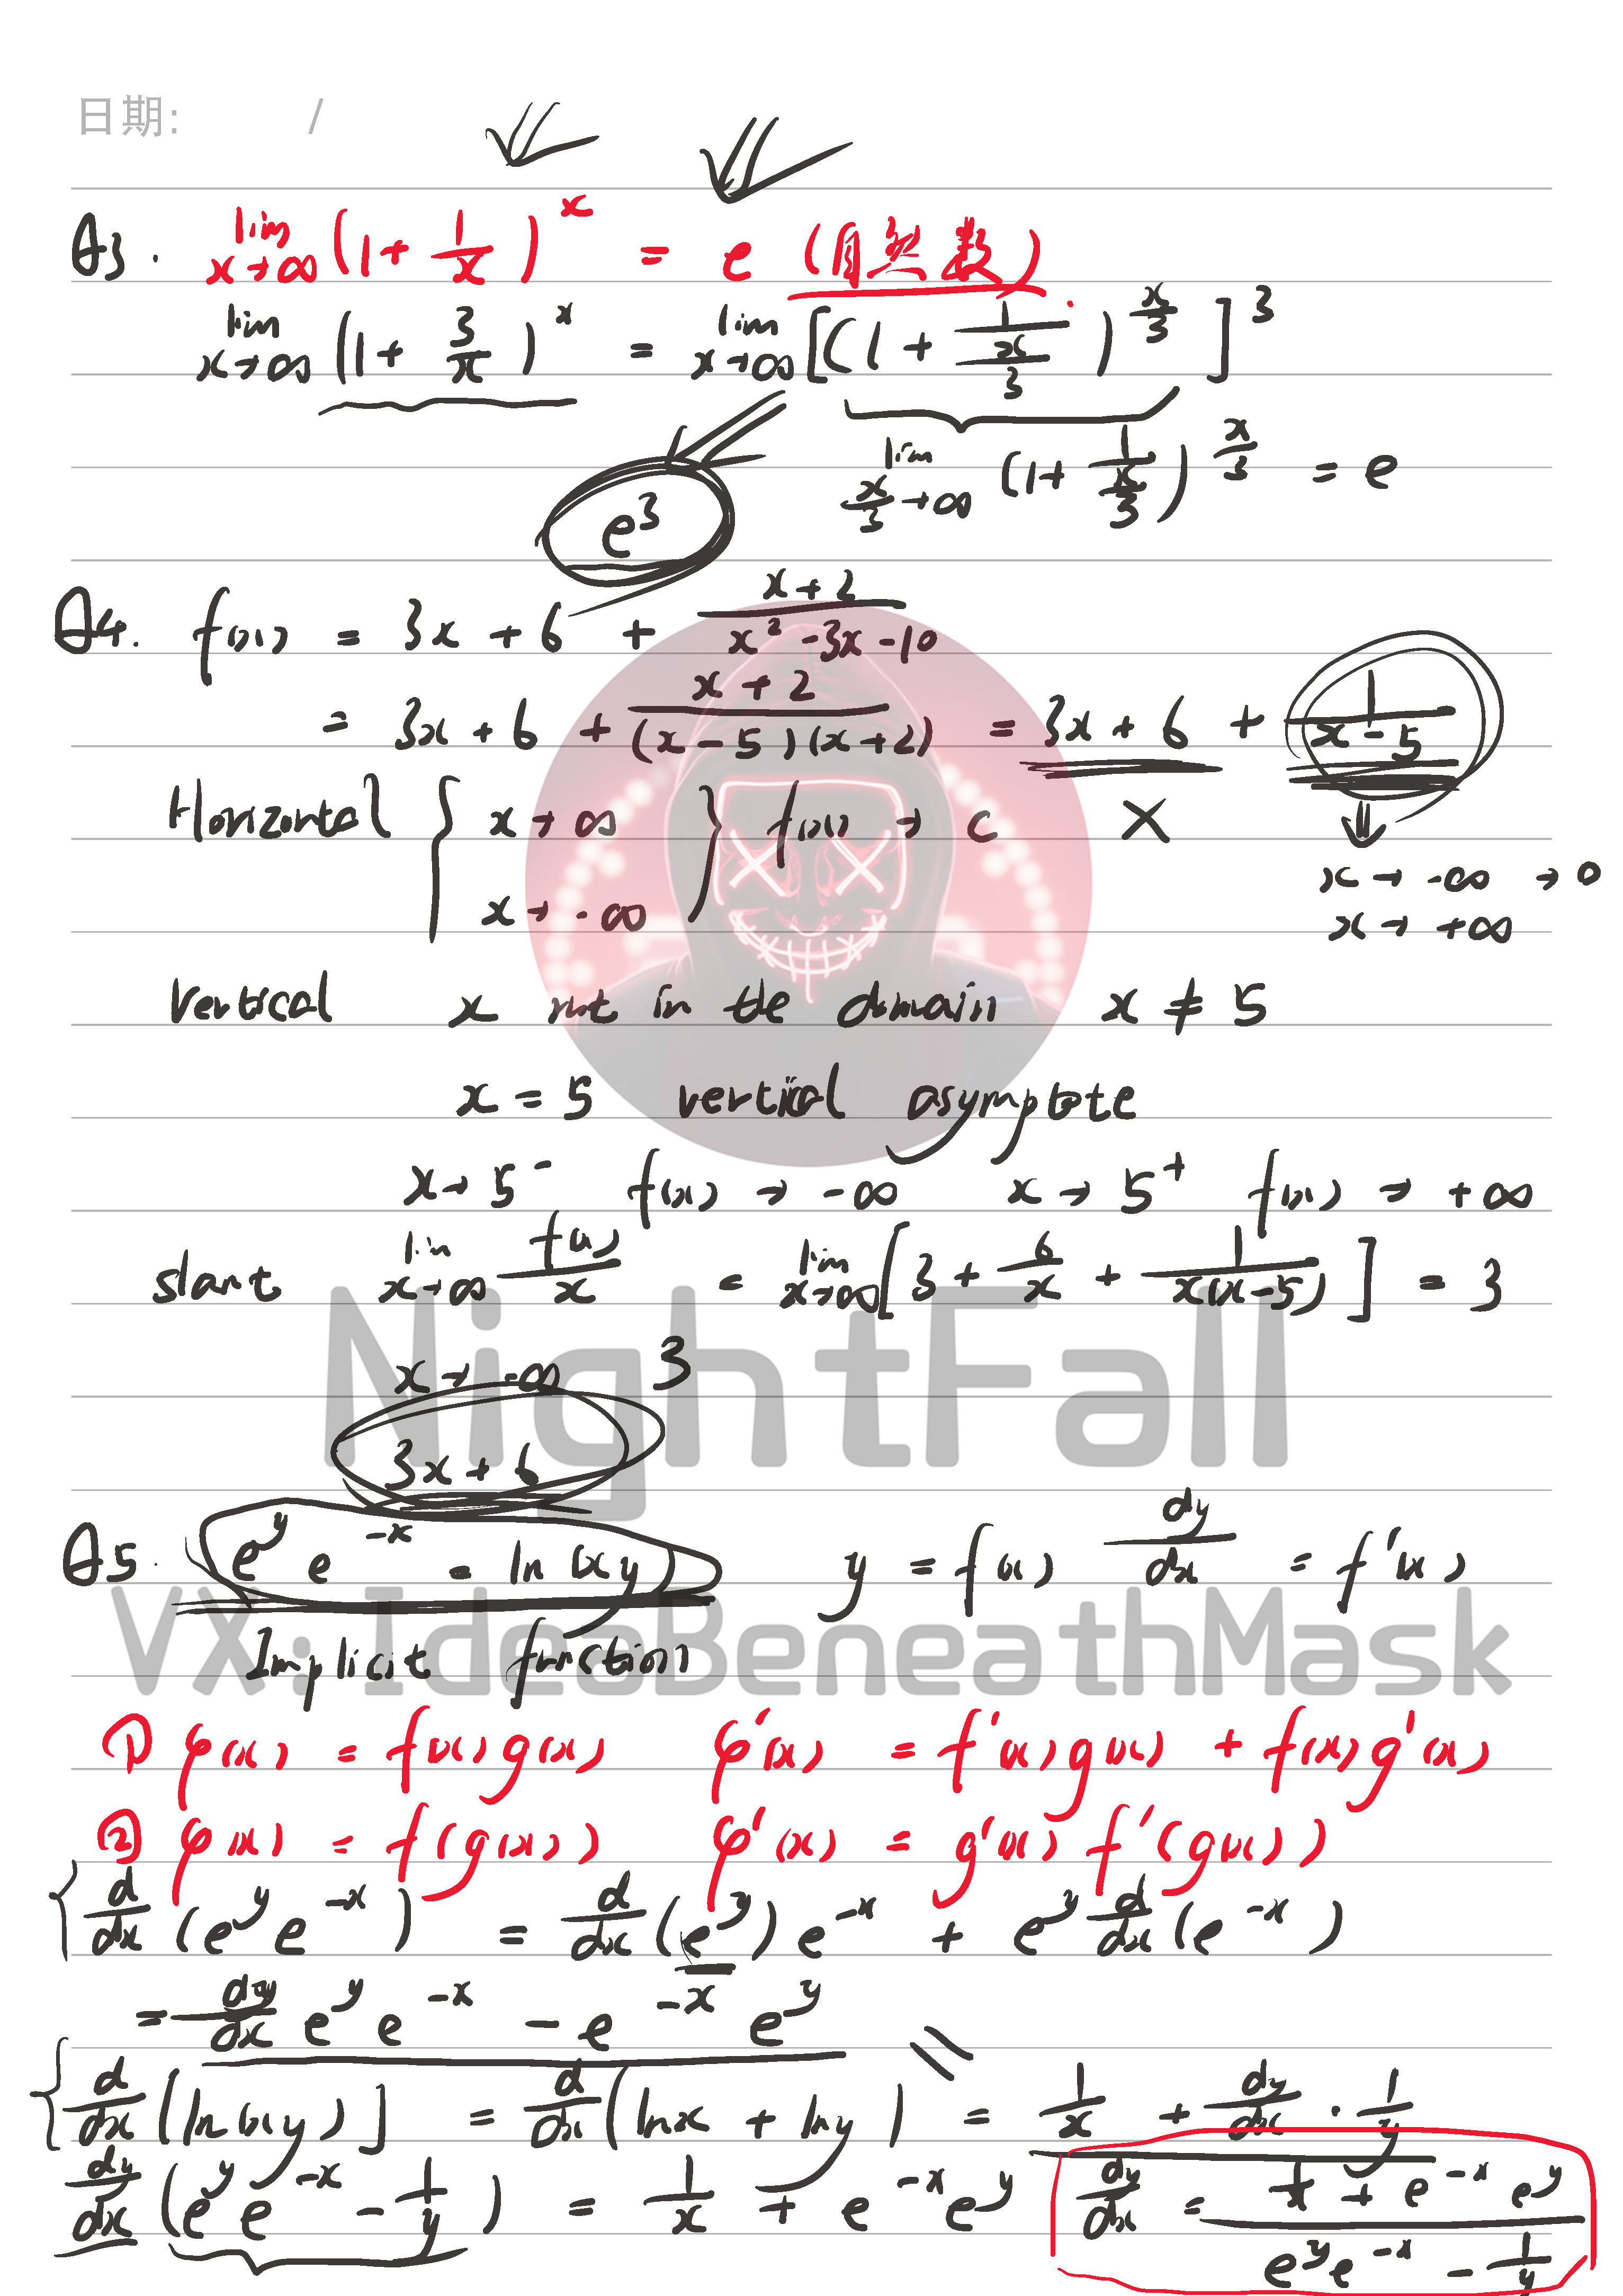 日期: /
Q3. lim x→∞ (1 + 1/x)^x = e (自然数).
lim x→∞ (1 + 3/x)^x = lim x→∞ [(1 + 1/(x/3))^(x/3)]^3
lim x/3→∞ (1 + 1/(x/3))^(x/3) = e
e^3
Q4. f(x) = 3x + 6 + (x+2)/(x² -3x -10)
= 3x + 6 + (x+2)/((x-5)(x+2)) = 3x + 6 + 1/(x-5)
Horizontal { x→∞ } f(x) → c ×
x→ -∞ → 0
x→ -∞
x→ +∞
Vertical x not in the domain x ≠ 5
x = 5 vertical asymptote
x→5⁻ f(x) → -∞ x→5⁺ f(x) → +∞
slant lim x→∞ f(x)/x = lim x→∞ [3 + 6/x + 1/(x(x-5))] = 3
x→ -∞ 3
NightFall
3x + 6
Q5. e^y e^-x = ln(xy) y = f(x) dy/dx = f'(x)
VX: IdeaBeneathMask
Implicit function
① φ(x) = f(x)g(x) φ'(x) = f'(x)g(x) + f(x)g'(x)
② φ(x) = f(g(x)) φ'(x) = g'(x) f'(g(x))
{ d/dx (e^y e^-x) = d/dx (e^y) e^-x + e^y d/dx (e^-x)
= dy/dx e^y e^-x - e^-x e^y
{ d/dx [ln(xy)] = d/dx (lnx + lny) = 1/x + dy/dx · 1/y
dy/dx (e^y e^-x - 1/y) = 1/x + e^-x e^y dy/dx = (1/x + e^-x e^y)/(e^y e^-x - 1/y)